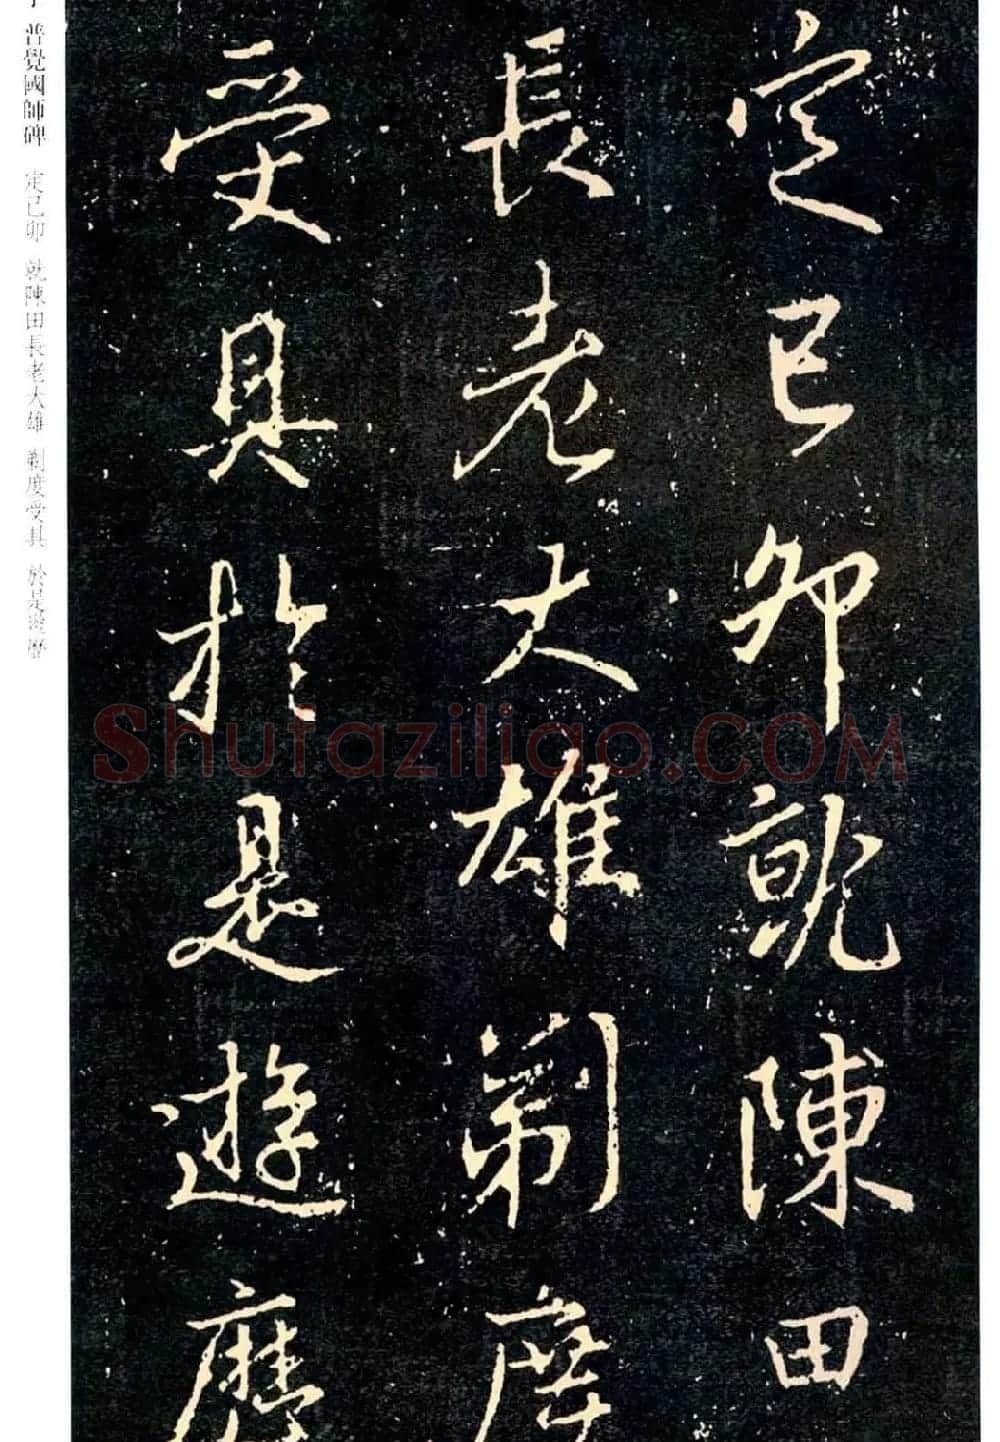 定己卯就陳田
長老大雄剃度
受具於是遊歷
普覺國師碑 定已卯 就陳田長老大雄 剃度受具 於是遊歷
Shufaziliao.COM